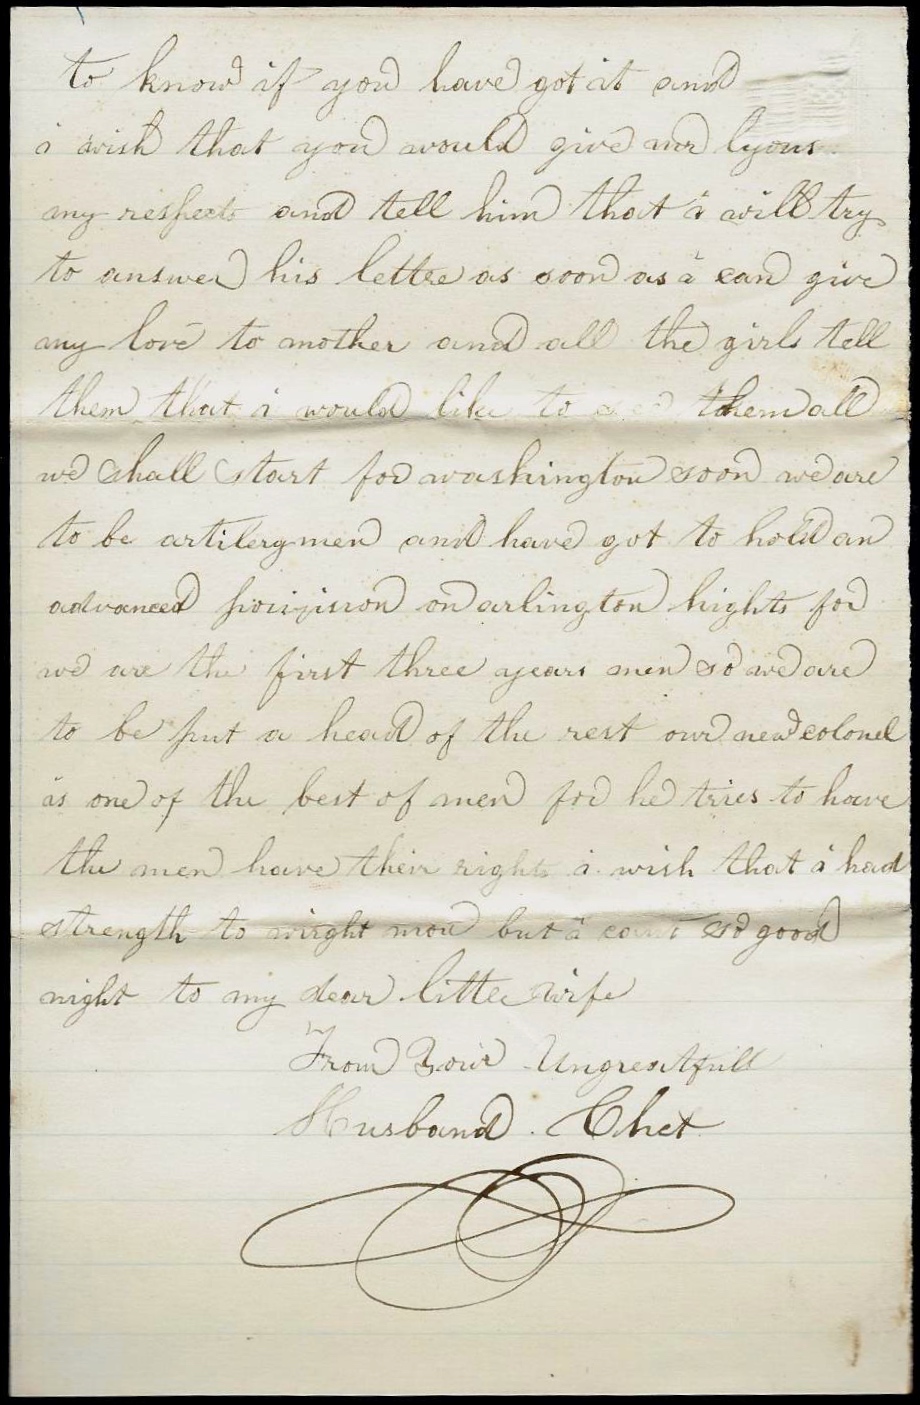 to know if you have got it and
i wish that you would give mr lyons
my respects and tell him that i will try
to answer his lettre as soon as i can give
my love to mother and all the girls tell
them that i would like to see them all
we shall start for washington soon we are
to be artilerymen and have got to hold an
advanced on arlington hights for
we are the first three years men so we are
to be put a head of the rest our new colonel
is one of the best of men for he tries to have
the men have their rights i wish that i had
strength to wright mor but i cant so good
night to my dear little wife
From Your Ungreatfull
Husband . Chet